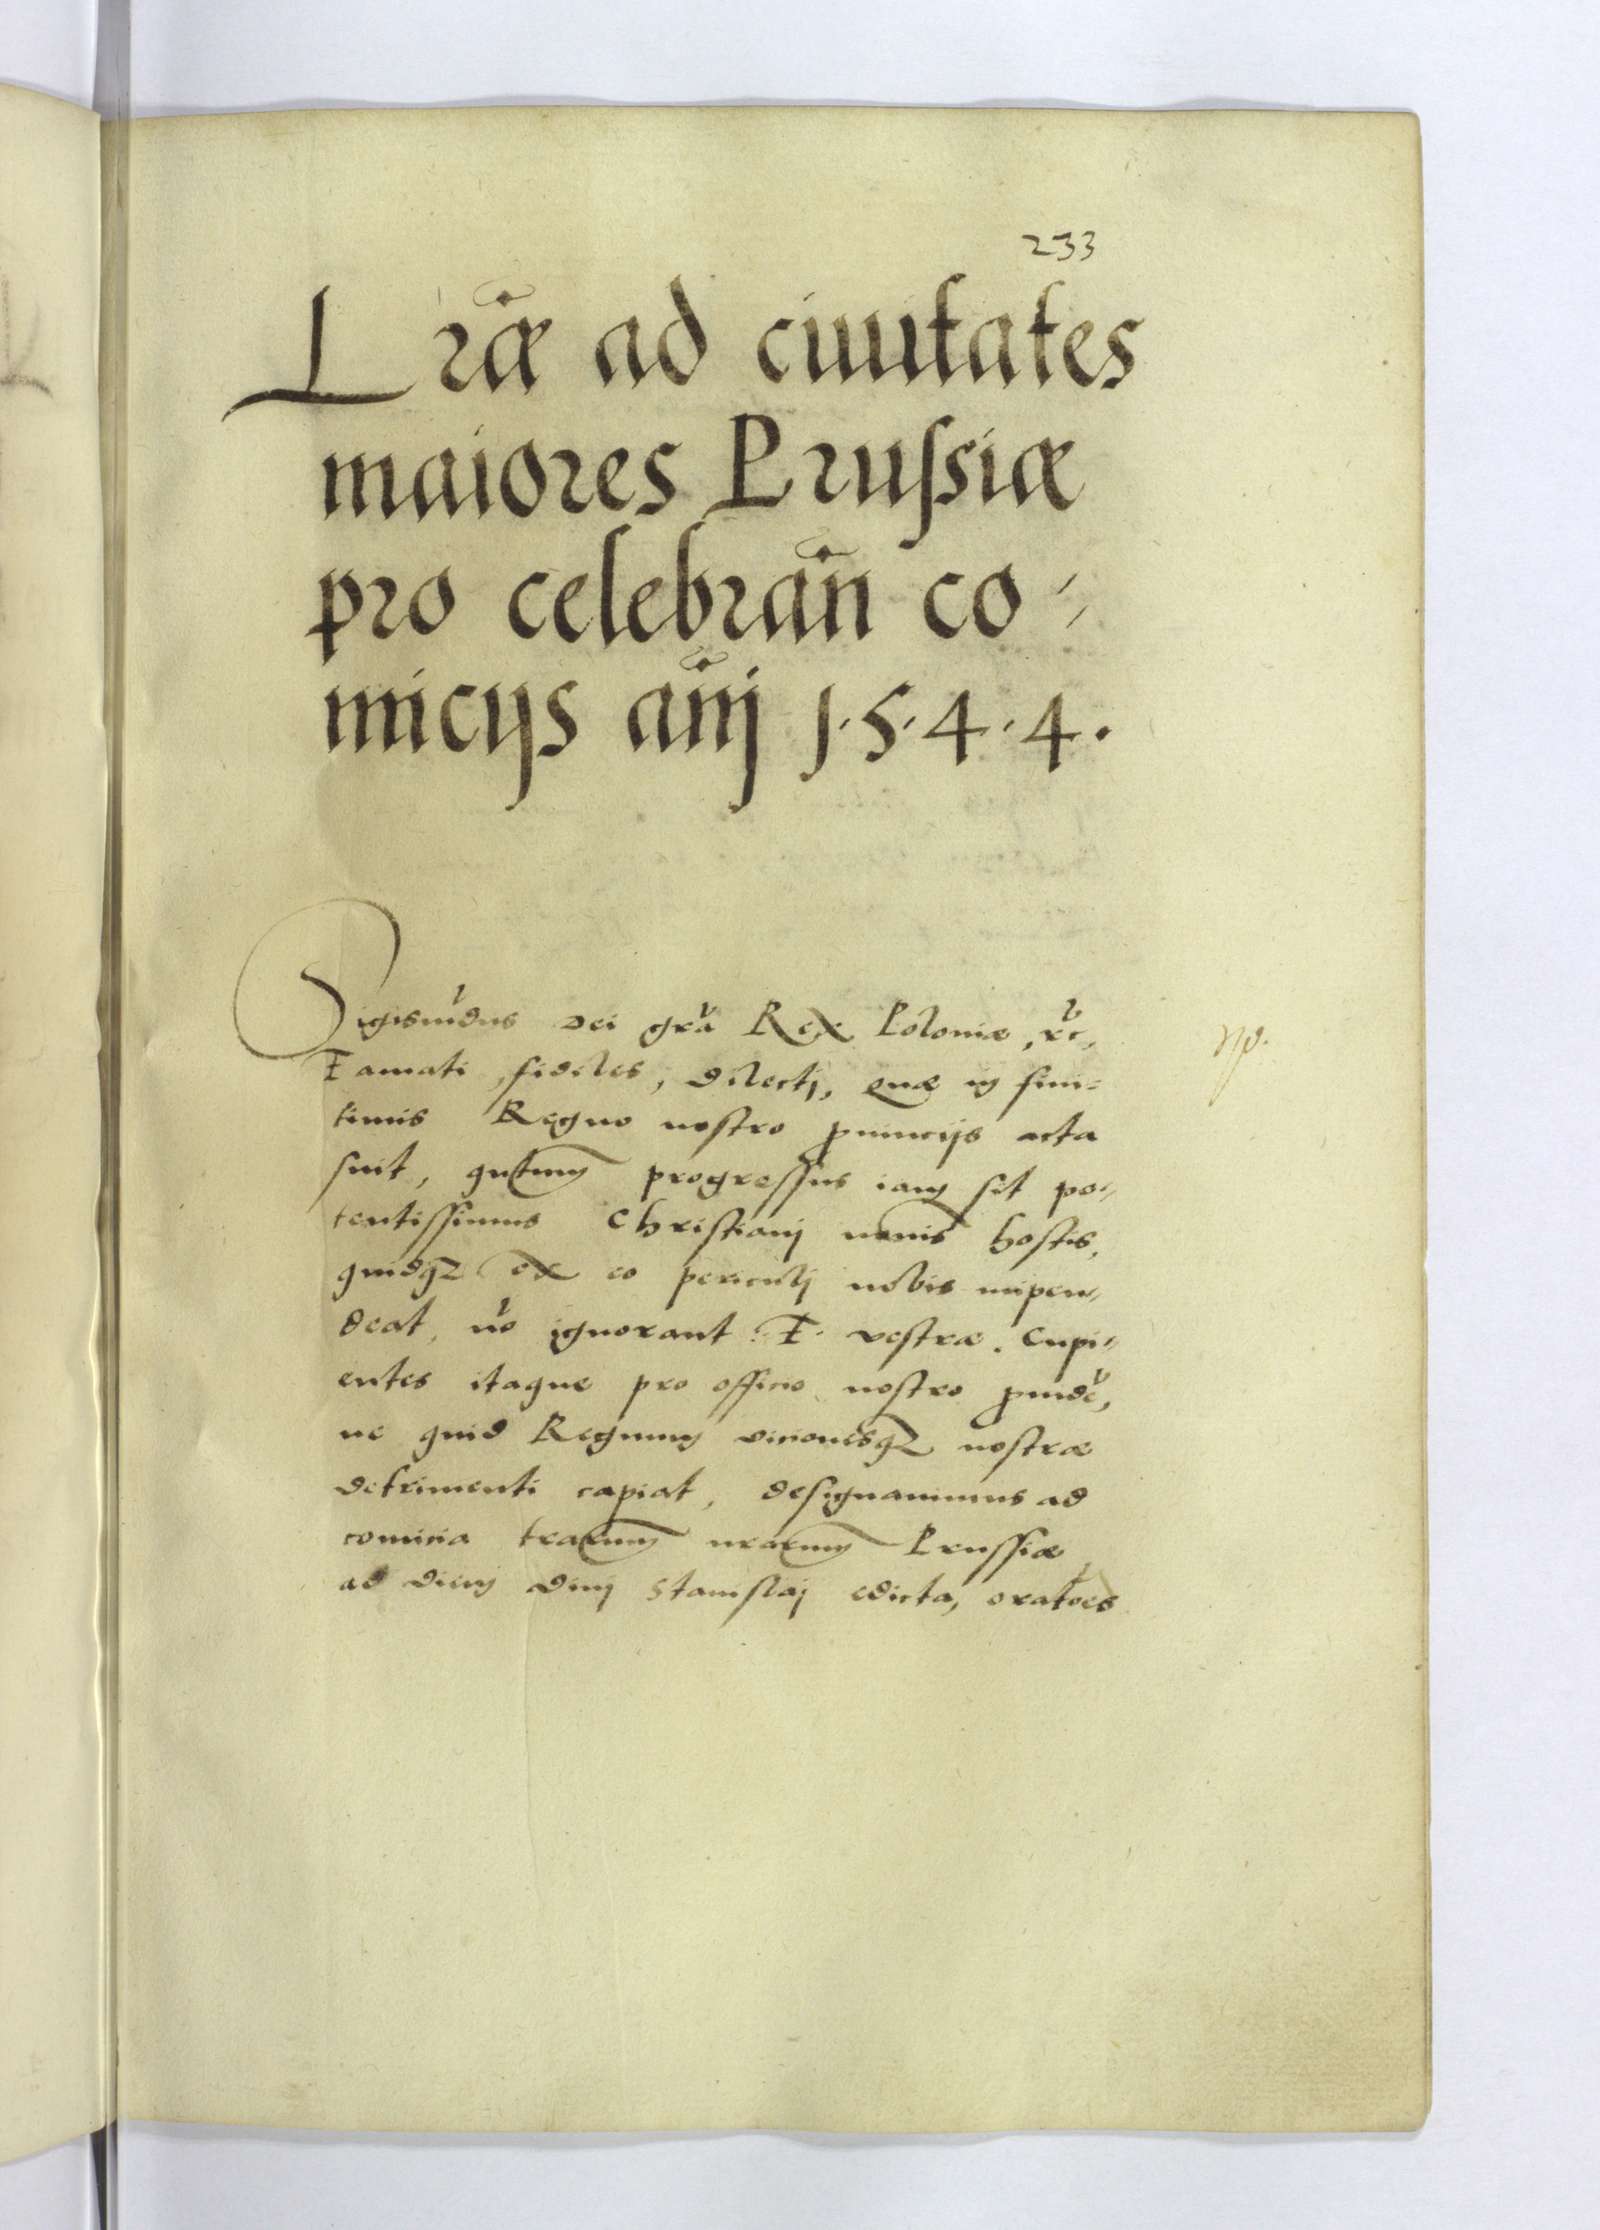 233
Lr̃æ ad ciuitates
maiores Prussiæ
pro celebrañ co-
micijs añj 1·5·4·4·
Sigismũdus Dei grã Rex Poloniæ, &c,
Famati, fideles, dilectj, quæ in fini-
timis Regno nostro ꝓuincijs acta
sint, qutum progressus iam sit po-
tentissimus Christianj nominis hostis,
quidqꝫ ex eo periculj nobis impen-
deat, nõ ignorant F. vestræ. Cupi-
entes itaque pro officio nostro ꝓuidẽ,
ne quid Regnum dicionesqꝫ nostræ
detrimenti capiat, designauimus ad
comicia trarum nrarum Prussiæ
ad diem diuj Stanislaj edicta, oratoes